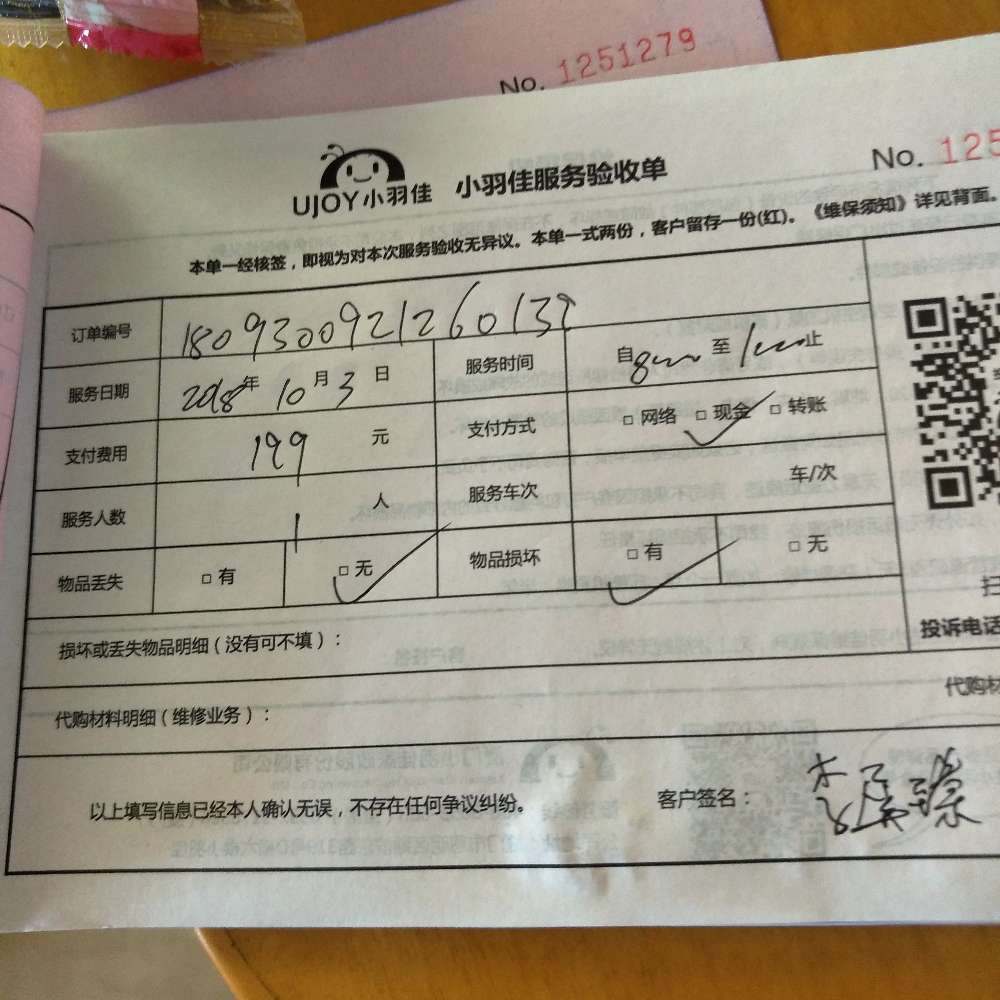 No. 1251279
No. 125
UJOY小羽佳 小羽佳服务验收单
本单一经核签，即视为对本次服务验收无异议。本单一式两份，客户留存一份(红)。《维保须知》详见背面。
订单编号 180930092126013
服务日期 2018年 10月 3日 服务时间 自8 至1 止
支付费用 199 元 支付方式 □ 网络 □ 现金 □ 转账
服务人数 1 人 服务车次 车/次
物品丢失 □ 有 □ 无 物品损坏 □ 有 □ 无
扫
投诉电话
损坏或丢失物品明细（没有可不填）：
代购材料明细（维修业务）： 代购材
以上填写信息已经本人确认无误，不存在任何争议纠纷。 客户签名：